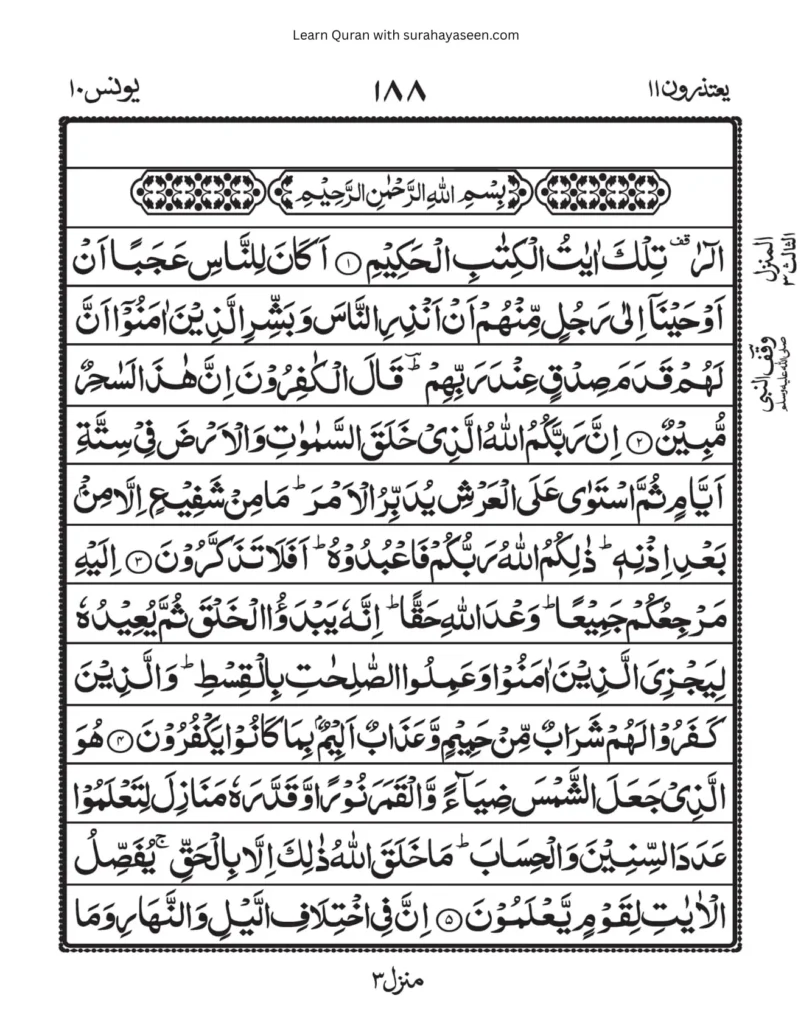 Learn Quran with surahayaseen.com
يعتذرون ١١
١٨٨
يونس ١٠
بِسْمِ اللهِ الرَّحْمٰنِ الرَّحِيْمِ
الٓرٰ قف تِلْكَ اٰيٰتُ الْكِتٰبِ الْحَكِيْمِ ۝١ اَكَانَ لِلنَّاسِ عَجَبًا اَنْ
اَوْحَيْنَآ اِلٰى رَجُلٍ مِّنْهُمْ اَنْ اَنْذِرِ النَّاسَ وَبَشِّرِ الَّذِيْنَ اٰمَنُوْٓا اَنَّ
لَهُمْ قَدَمَ صِدْقٍ عِنْدَ رَبِّهِمْ ؕ قَالَ الْكٰفِرُوْنَ اِنَّ هٰذَا لَسٰحِرٌ
مُّبِيْنٌ ۝٢ اِنَّ رَبَّكُمُ اللهُ الَّذِيْ خَلَقَ السَّمٰوٰتِ وَالْاَرْضَ فِيْ سِتَّةِ
اَيَّامٍ ثُمَّ اسْتَوٰى عَلَى الْعَرْشِ يُدَبِّرُ الْاَمْرَ ؕ مَا مِنْ شَفِيْعٍ اِلَّا مِنْۢ
بَعْدِ اِذْنِهٖ ؕ ذٰلِكُمُ اللهُ رَبُّكُمْ فَاعْبُدُوْهُ ؕ اَفَلَا تَذَكَّرُوْنَ ۝٣ اِلَيْهِ
مَرْجِعُكُمْ جَمِيْعًا ؕ وَعْدَ اللهِ حَقًّا ؕ اِنَّهٗ يَبْدَؤُا الْخَلْقَ ثُمَّ يُعِيْدُهٗ
لِيَجْزِيَ الَّذِيْنَ اٰمَنُوْا وَعَمِلُوا الصّٰلِحٰتِ بِالْقِسْطِ ؕ وَالَّذِيْنَ
كَفَرُوْا لَهُمْ شَرَابٌ مِّنْ حَمِيْمٍ وَّعَذَابٌ اَلِيْمٌۢ بِمَا كَانُوْا يَكْفُرُوْنَ ۝٤ هُوَ
الَّذِيْ جَعَلَ الشَّمْسَ ضِيَآءً وَّالْقَمَرَ نُوْرًا وَّقَدَّرَهٗ مَنَازِلَ لِتَعْلَمُوْا
عَدَدَ السِّنِيْنَ وَالْحِسَابَ ؕ مَا خَلَقَ اللهُ ذٰلِكَ اِلَّا بِالْحَقِّ ۚ يُفَصِّلُ
الْاٰيٰتِ لِقَوْمٍ يَّعْلَمُوْنَ ۝٥ اِنَّ فِي اخْتِلَافِ الَّيْلِ وَالنَّهَارِ وَمَا
المنزل
الثالث ٣
وقف النبي
صلى الله عليه وسلم
منزل ٣